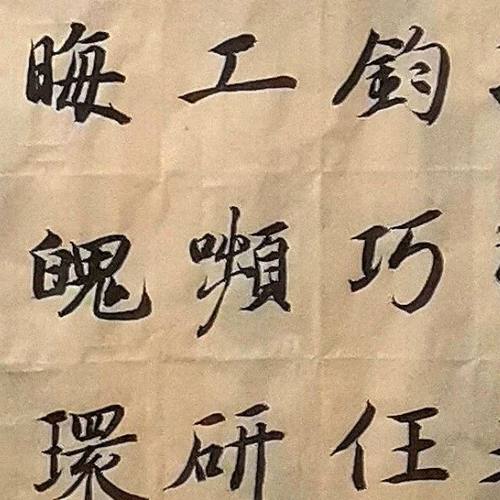 鈞巧任
工嚬研
晦魄環